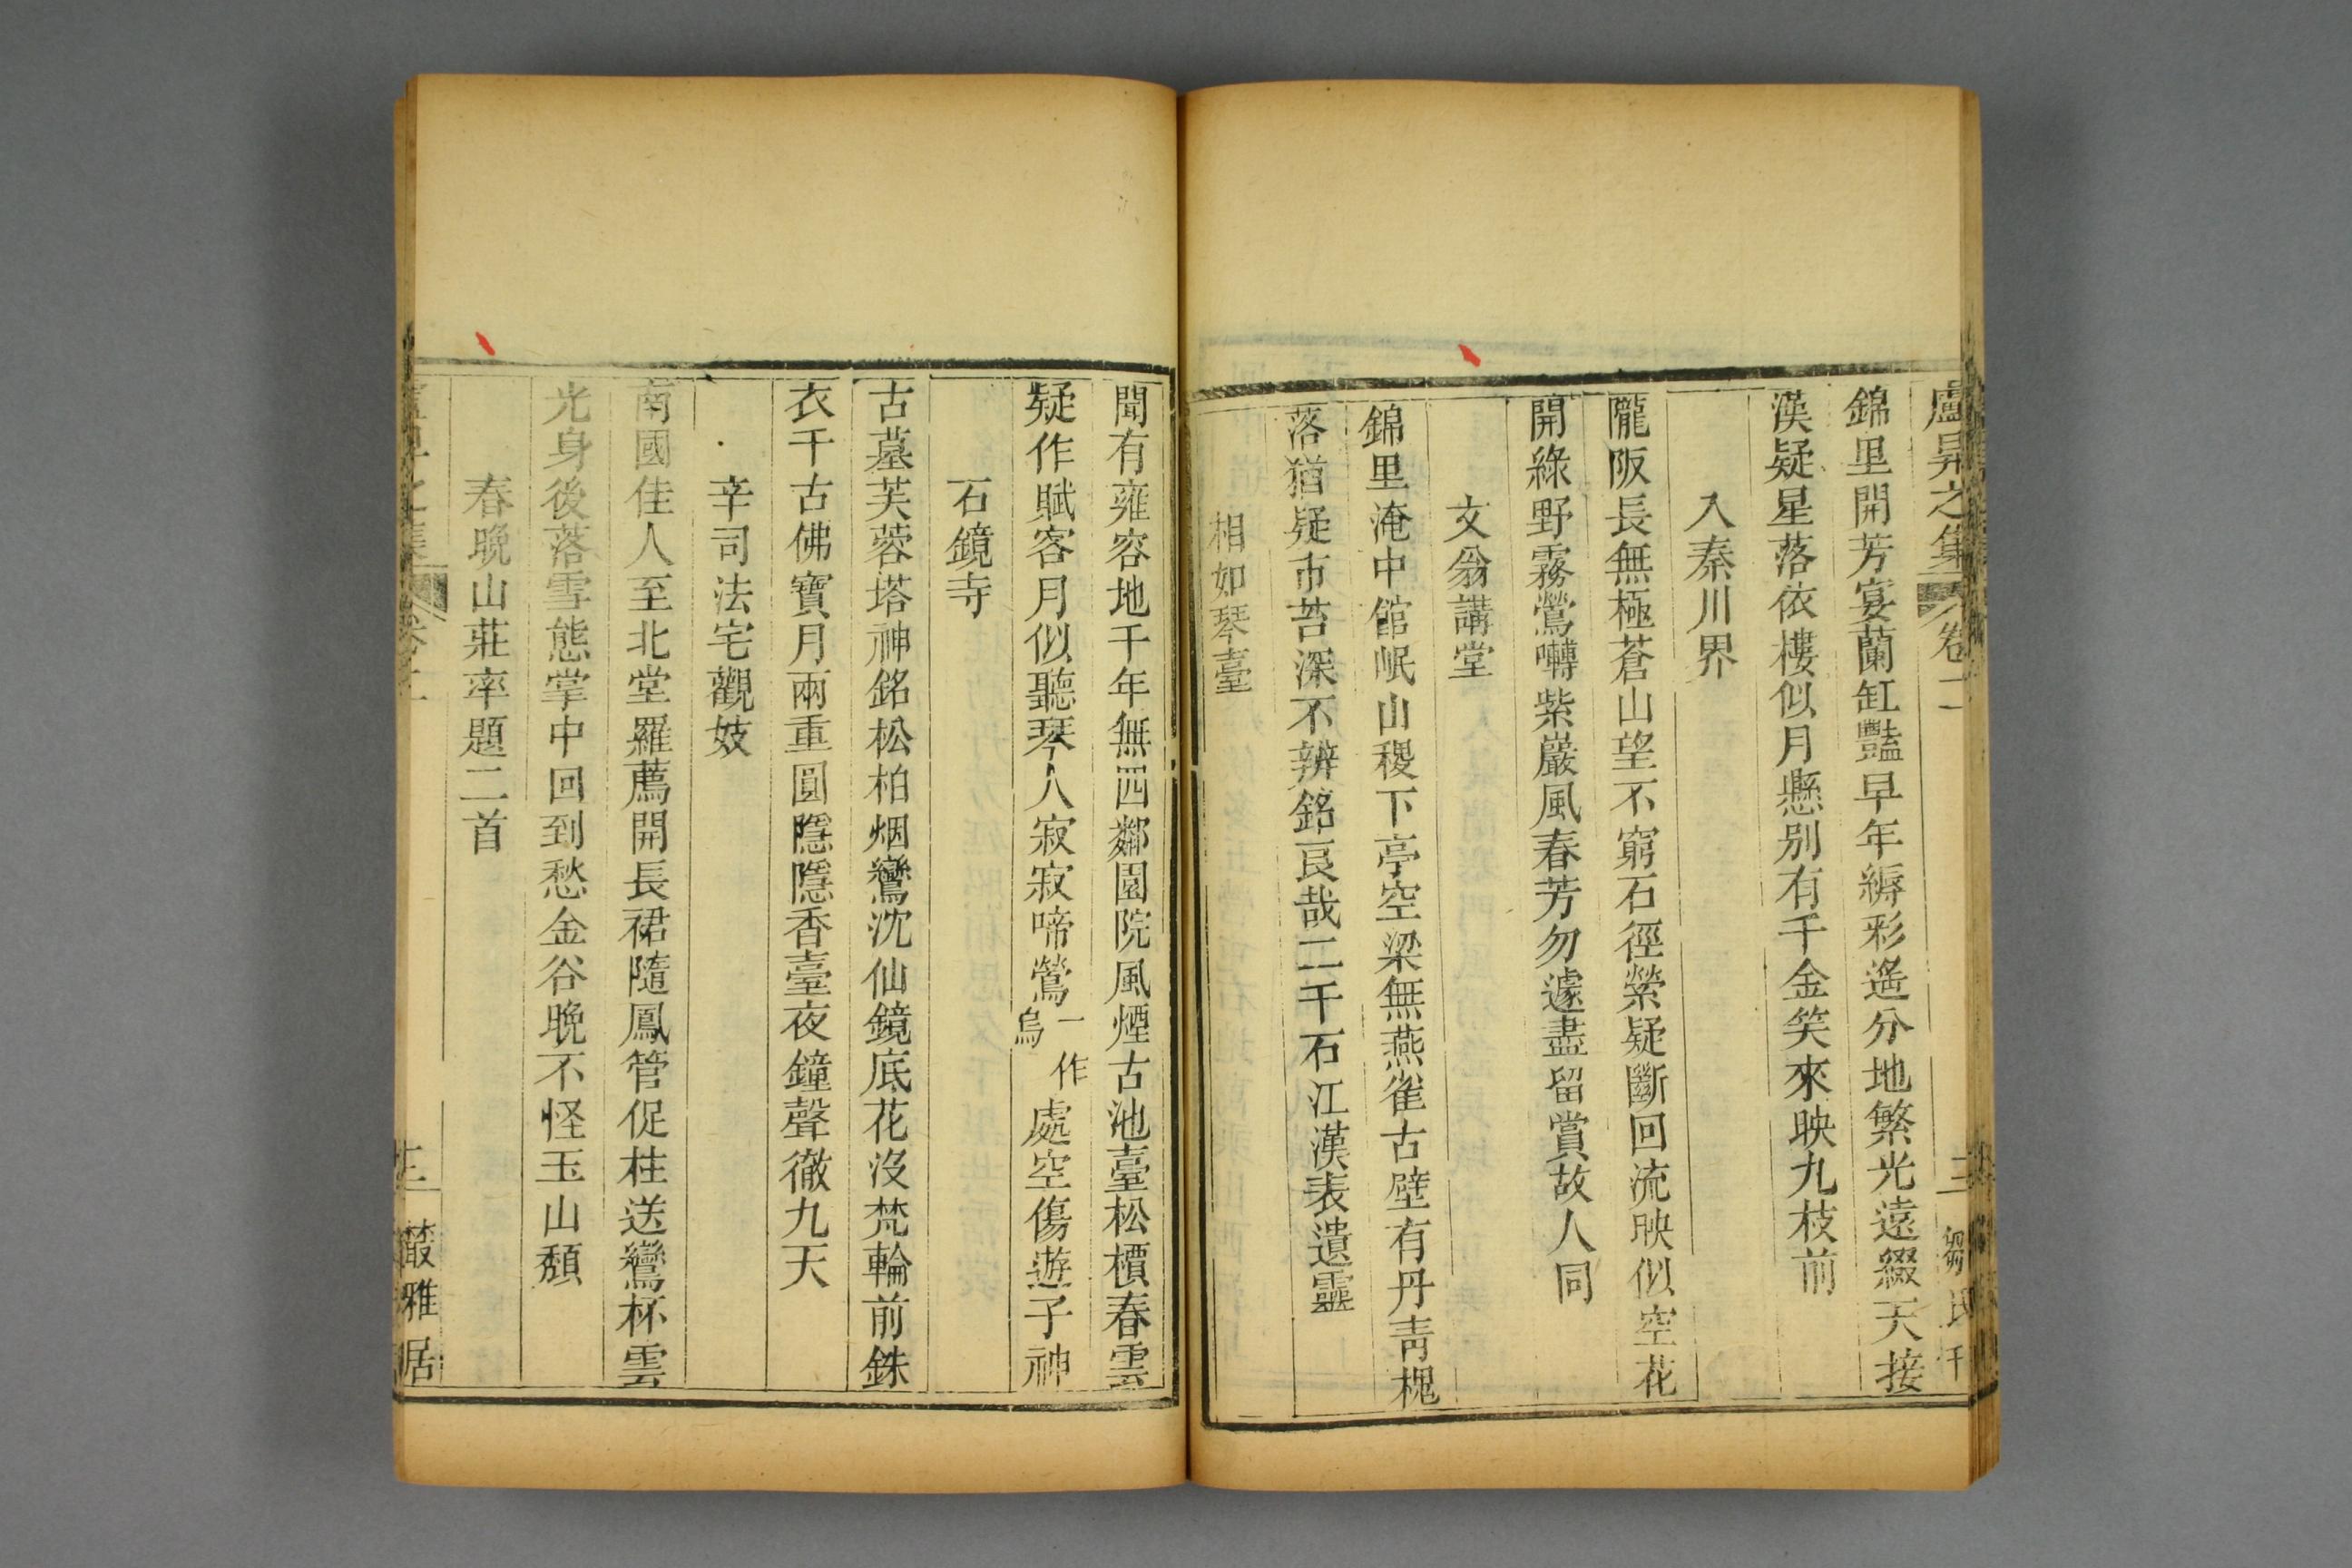 盧昇之集 卷二
錦里開芳宴蘭缸豔早年縟彩遙分地繁光遠綴天接
漢疑星落依樓似月懸别有千金笑來映九枝前
入秦川界
隴阪長無極蒼山望不窮石徑縈疑斷回流映似空花
開綠野霧鶯囀紫巖風春芳勿遽盡留賞故人同
文翁講堂
錦里淹中館岷山稷下亭空梁無燕雀古壁有丹青槐
落猶疑市苔深不辨銘良哉二千石江漢表遺靈
相如琴臺
聞有雍容地千年無四鄰園院風煙古池臺松檟春雲
疑作賦客月似聽琴人寂寂啼鶯一作烏處空傷遊子神
石鏡寺
古墓芙蓉塔神銘松柏烟鸞沈仙鏡底花沒梵輪前銖
衣千古佛寶月兩重圓隱隱香臺夜鐘聲徹九天
辛司法宅觀妓
南國佳人至北堂羅薦開長裙隨鳳管促柱送鸞杯雲
光身後落雪態掌中回到愁金谷晚不怪玉山頹
春晚山莊率題二首
叢雅居